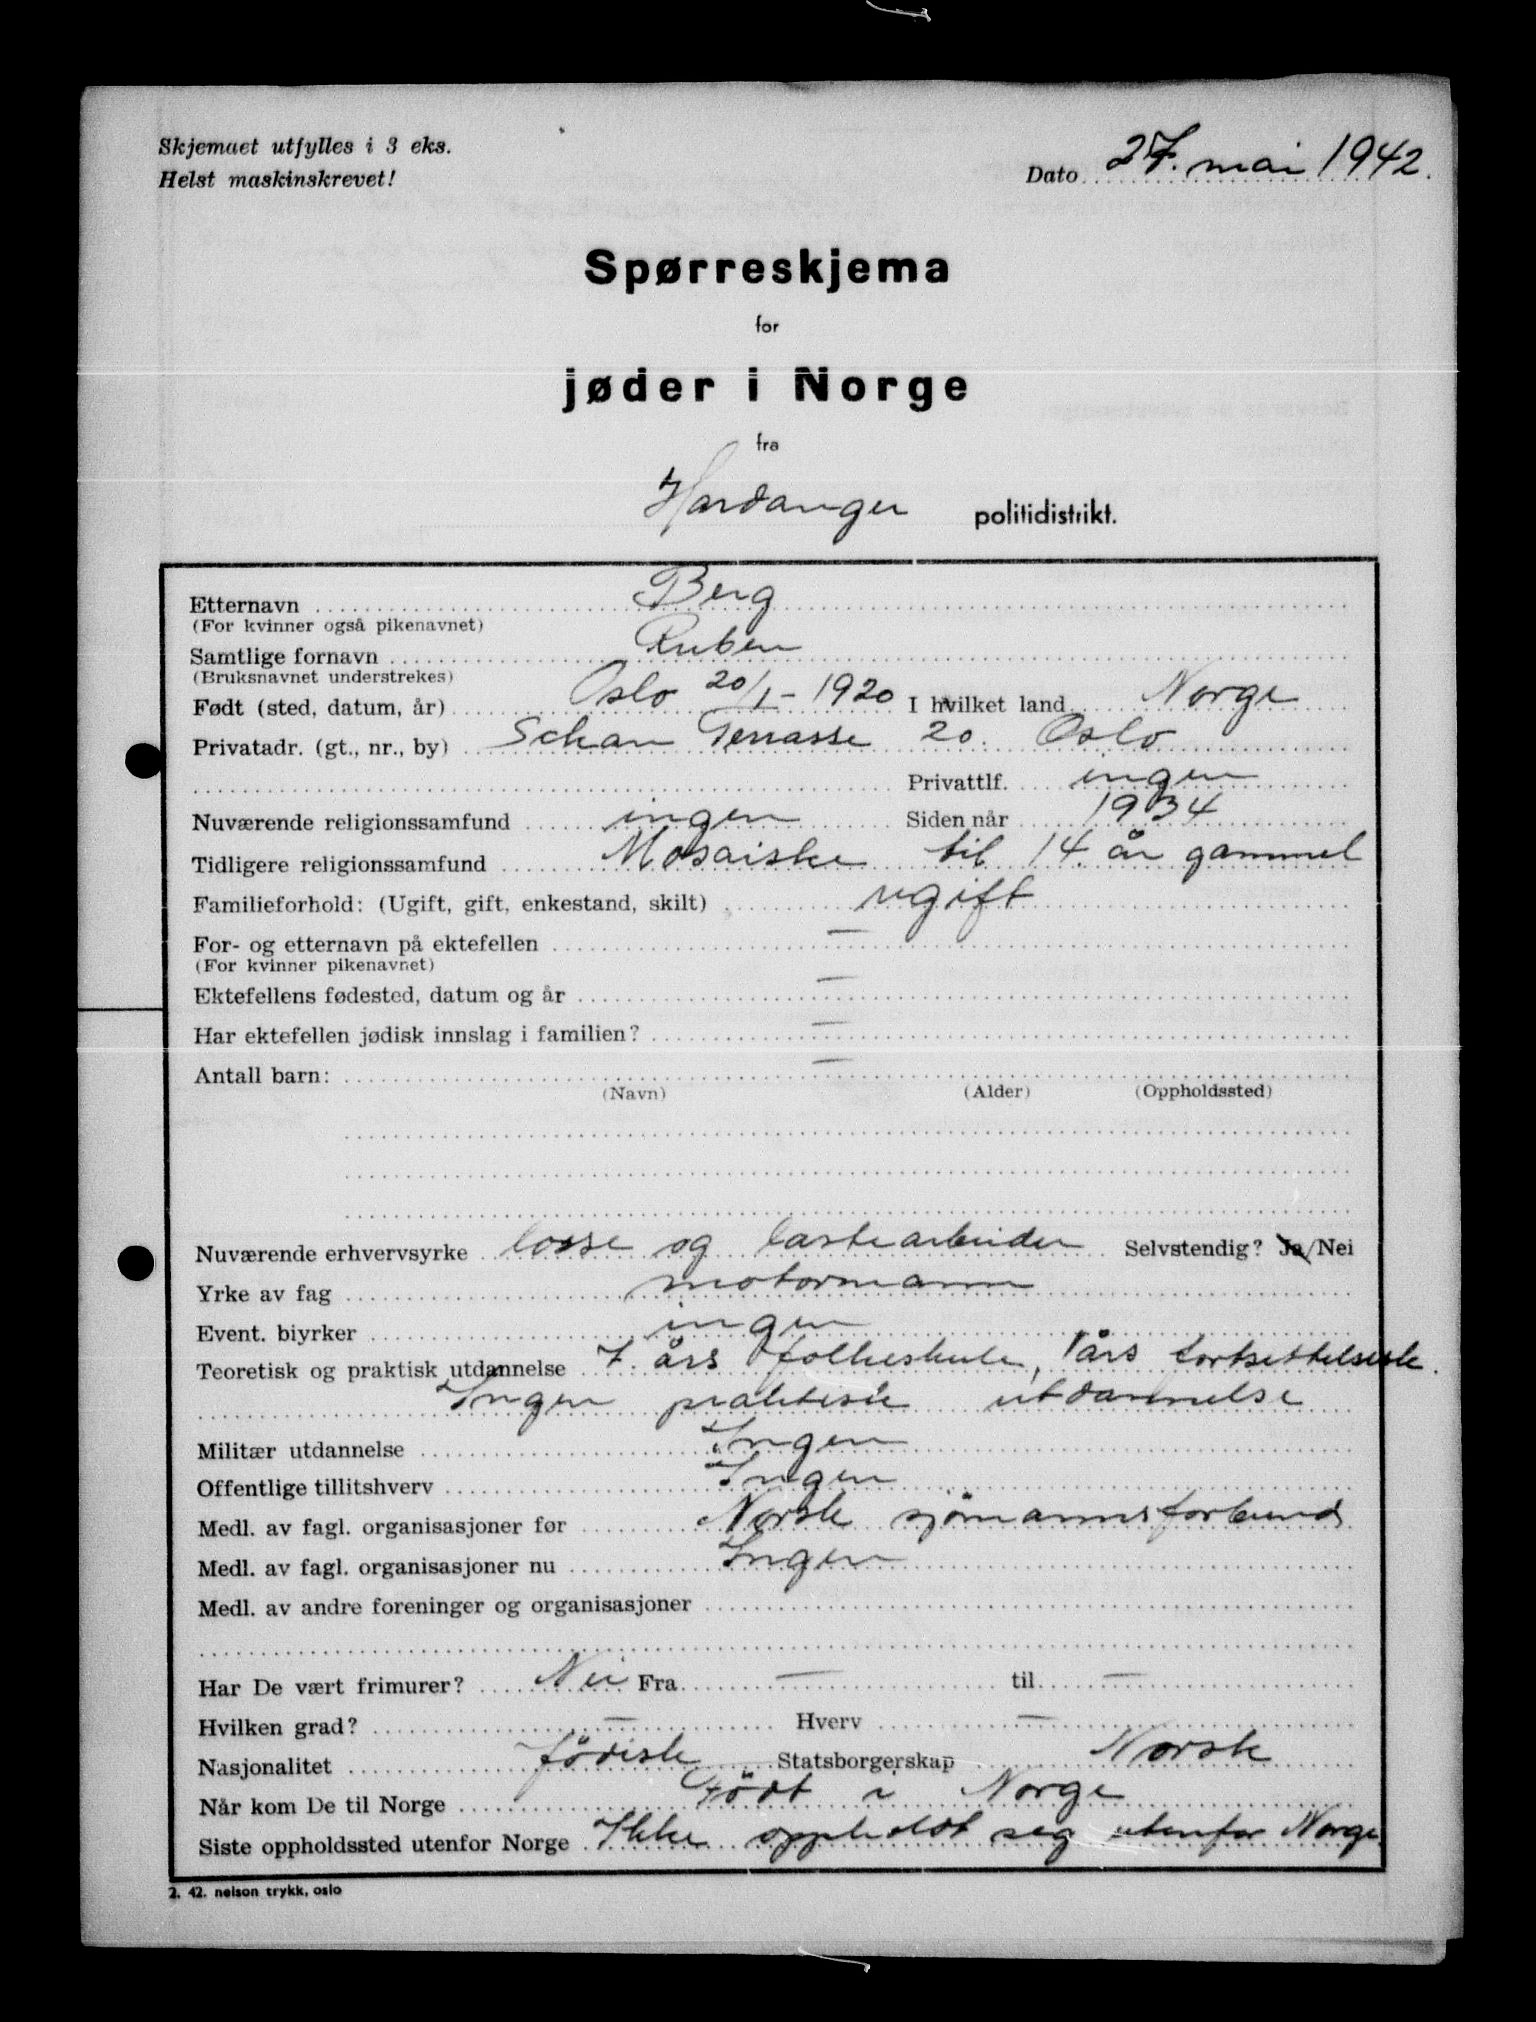 Skjemaet utfylles i 3 eks.
Helst maskinskrevet!
Dato 27. mai 1942.
Spørreskjema
for
jøder i Norge
fra
Hardanger politidistrikt.
Etternavn Berg
(For kvinner også pikenavnet)
Samtlige fornavn Ruben
(Bruksnavnet understrekes)
Født (sted, datum, år) Oslo 20/1 - 1920 I hvilket land Norge
Privatadr. (gt., nr., by) Schan Terrasse 20. Oslo
Privattlf. ingen
Nuværende religionssamfund ingen Siden når 1934
Tidligere religionssamfund Mosaiske til 14 år gammel
Familieforhold: (Ugift, gift, enkestand, skilt) ugift
For- og etternavn på ektefellen —
(For kvinner pikenavnet)
Ektefellens fødested, datum og år —
Har ektefellen jødisk innslag i familien? —
Antall barn: —
(Navn) (Alder) (Oppholdssted)
Nuværende erhvervsyrke losse og lastearbeider Selvstendig? Ja/Nei
Yrke av fag motormann
Event. biyrker ingen
Teoretisk og praktisk utdannelse 7. års folkeskule, 1 års fortsettelsessk.
Ingen praktisk utdannelse
Militær utdannelse Ingen
Offentlige tillitshverv Ingen
Medl. av fagl. organisasjoner før Norsk sjömannsforbund
Medl. av fagl. organisasjoner nu Ingen
Medl. av andre foreninger og organisasjoner
Har De vært frimurer? Nei Fra — til —
Hvilken grad? — Hverv —
Nasjonalitet Jödisk Statsborgerskap Norsk
Når kom De til Norge Födt i Norge
Siste oppholdssted utenfor Norge Ikke oppholdt seg utenfor Norge.
2. 42. nelson trykk, oslo